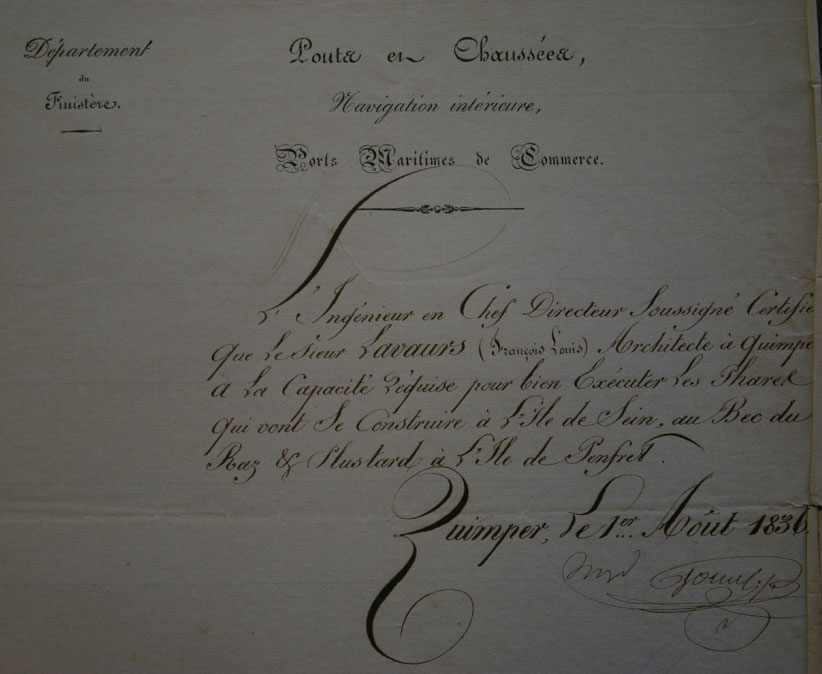 Département
du
Finistère.
Ponts et Chaussées,
Navigation intérieure,
Ports Maritimes de Commerce.
L'Ingénieur en Chef Directeur Soussigné Certifie
que Le Sieur Lavaurs (François Louis) Architecte à Quimpe
a La Capacité Réquise pour bien Exécuter Les Phares
qui vont Se Construire à L'Ile de Sein, au Bec du
Raz & Plustard à L'Ile de Penfret.
Quimper, Le 1er Août 1836.